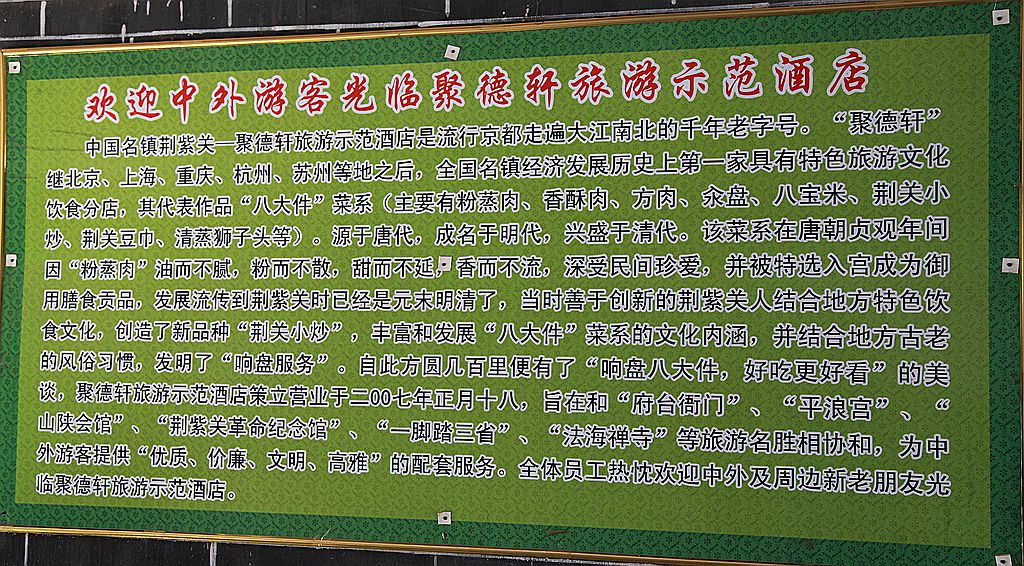 欢迎中外游客光临聚德轩旅游示范酒店
中国名镇荆紫关—聚德轩旅游示范酒店是流行京都走遍大江南北的千年老字号。“聚德轩”
继北京、上海、重庆、杭州、苏州等地之后，全国名镇经济发展历史上第一家具有特色旅游文化
饮食分店，其代表作品“八大件”菜系（主要有粉蒸肉、香酥肉、方肉、汆盘、八宝米、荆关小
炒、荆关豆巾、清蒸狮子头等）。源于唐代，成名于明代，兴盛于清代。该菜系在唐朝贞观年间
因“粉蒸肉”油而不腻，粉而不散，甜而不延，香而不流，深受民间珍爱，并被特选入宫成为御
用膳食贡品，发展流传到荆紫关时已经是元末明清了，当时善于创新的荆紫关人结合地方特色饮
食文化，创造了新品种“荆关小炒”，丰富和发展“八大件”菜系的文化内涵，并结合地方古老
的风俗习惯，发明了“响盘服务”。自此方圆几百里便有了“响盘八大件，好吃更好看”的美
谈，聚德轩旅游示范酒店策立营业于二00七年正月十八，旨在和“府台衙门”、“平浪宫”、“
山陕会馆”、“荆紫关革命纪念馆”、“一脚踏三省”、“法海禅寺”等旅游名胜相协和，为中
外游客提供“优质、价廉、文明、高雅”的配套服务。全体员工热忱欢迎中外及周边新老朋友光
临聚德轩旅游示范酒店。